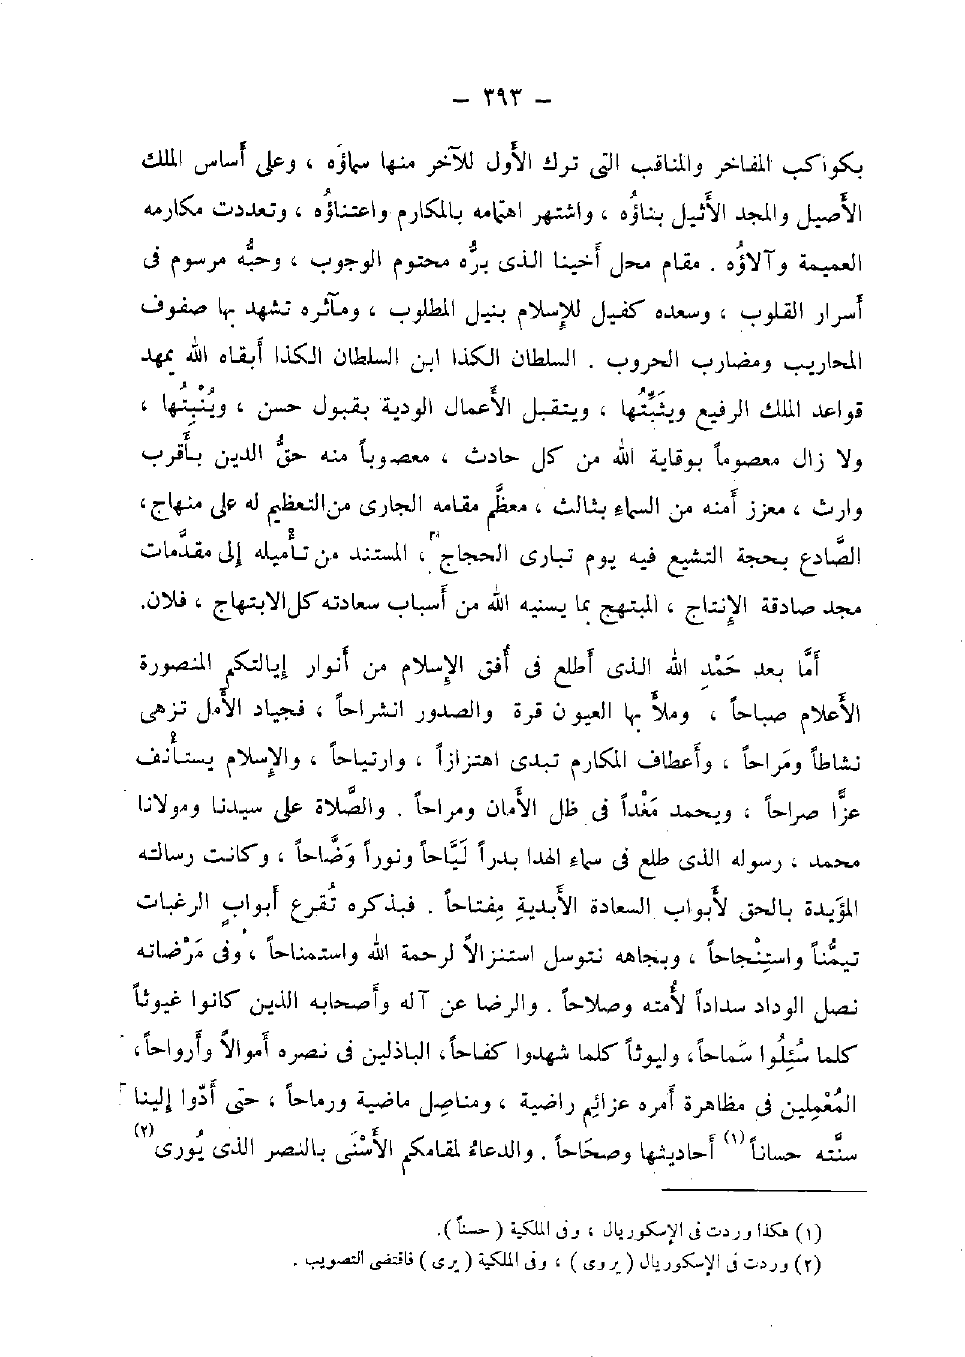 — ٣٩٣ —
بكواكب المفاخر والمناقب التى ترك الأول للآخر منها سماؤه ، وعلى أساس الملك
الأصيل والمجد الأثيل بناؤُه ، واشتهر اهتمامه بالمكارم واعتناؤُه ، وتعددت مكارمه
العميمة وآلاؤُه . مقام محل أخينا الذى برُّه محتوم الوجوب ، وحبُّه مرسوم فى
أسرار القلوب ، وسعده كفيل للإسلام بنيل المطلوب ، ومآثره تشهد بها صفوف
المحاريب ومضارب الحروب . السلطان الكذا ابن السلطان الكذا أبقاه الله يمهد
قواعد الملك الرفيع ويثَبِّتُها ، ويتقبل الأعمال الودية بقبول حسن ، ويُنْبِتُها ،
ولا زال معصوماً بوقاية الله من كل حادث ، معصوباً منه حقُّ الدين بأقرب
وارث ، معزز أمنه من السماء بثالث ، معظَّم مقامه الجارى من التعظيم له على منهاج ،
الصَّادع بحجة التشيع فيه يوم تبارى الحجاج ، المستند من تأميله إلى مقدَّمات
مجد صادقة الإنتاج ، المبتهج بما يسنيه الله من أسباب سعادته كل الابتهاج ، فلان.
أمَّا بعد حَمْدِ الله الذى أطلع فى أُفق الإسلام من أنوار إيالتكم المنصورة
الأعلام صباحاً ، وملأ بها العيون قرة والصدور انشراحاً ، فجياد الأمل تزهى
نشاطاً ومَراحاً ، وأعطاف المكارم تبدى اهتزازاً ، وارتياحاً ، والإسلام يستأنف
عزًّا صراحاً ، ويحمد مَغْداً فى ظل الأمان ومراحاً . والصَّلاة على سيدنا ومولانا
محمد ، رسوله الذى طلع فى سماء الهدا بدراً لَيَّاحاً ونوراً وَضَّاحاً ، وكانت رسالته
المؤيدة بالحق لأبواب السعادة الأبدية مِفتاحاً . فبذكره تُقرع أبواب الرغبات
تيمُّناً واستِنْجاحاً ، وبجاهه نتوسل استنزالاً لرحمة الله واستمناحاً ، وفى مَرْضاته
نصل الوداد سداداً لأُمته وصلاحاً . والرضا عن آله وأصحابه الذين كانوا غيوثاً
كلما سُئِلُوا سَماحاً، وليوثاً كلما شهدوا كفاحاً، الباذلين فى نصره أموالاً وأرواحاً،
المُعْمِلين فى مظاهرة أمره عزائم راضية ، ومناصِل ماضية ورماحاً ، حتى أدّوا إلينا
سنَّته حساناً (١) أحاديثها وصحَاحاً . والدعاءُ لمقامكم الأسْنَى بالنصر الذى يُورى (٢)
(١) هكذا وردت فى الإسكوريال ، وفى الملكية ( حسناً ).
(٢) وردت فى الإسكوريال ( يروى ) ، وفى الملكية ( يرى ) فاقتضى التصويب .